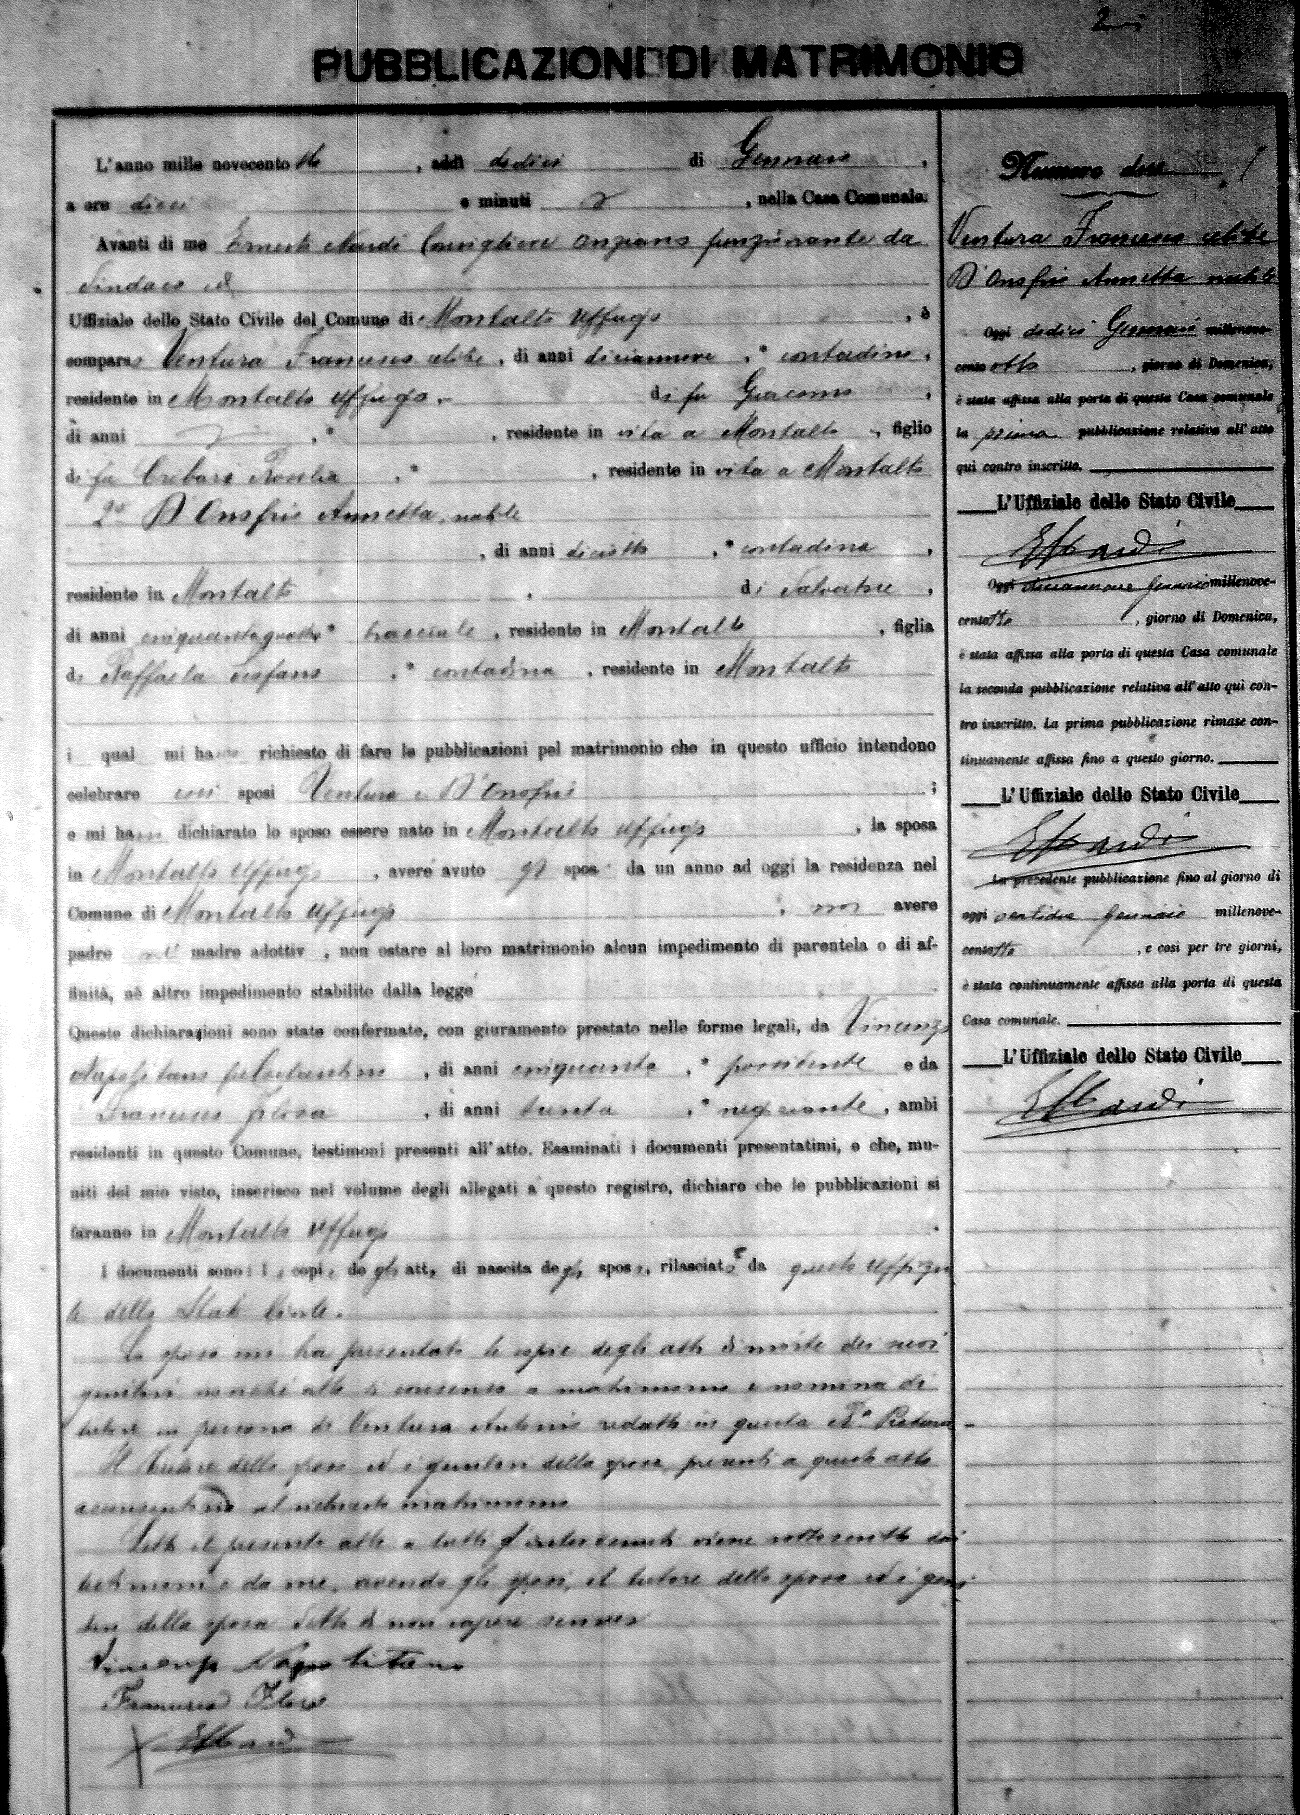 2
PUBBLICAZIONI DI MATRIMONIO
L'anno mille novecento otto, addì dodici di Gennaio,
a ore dieci e minuti, nella Casa Comunale.
Avanti di me Ernesto Nardi Consigliere anziano funzionante da
Sindaco ed
Uffiziale dello Stato Civile del Comune di Montalto Uffugo, è
compars Ventura Francesco celibe, di anni diciannove, contadino,
residente in Montalto Uffugo. di fu Giacomo,
di anni, residente in vita a Montalto, figlio
di fu Rosalia, residente in vita a Montalto
2° D'Onofrio Annetta, nubile
, di anni diciotto, contadina,
residente in Montalto, di Salvatore,
di anni cinquantaquattro bracciale, residente in Montalto, figlia
di Raffaela, contadina, residente in Montalto
i qual mi hanno richiesto di fare le pubblicazioni pel matrimonio che in questo ufficio intendono
celebrare essi sposi Ventura e D'Onofrio;
e mi hanno dichiarato lo sposo essere nato in Montalto Uffugo, la sposa
in Montalto Uffugo, avere avuto gli spos da un anno ad oggi la residenza nel
Comune di Montalto Uffugo; non avere
padre nè madre adottiv, non ostare al loro matrimonio alcun impedimento di parentela o di af-
finità, nè altro impedimento stabilito dalla legge
Queste dichiarazioni sono state confermate, con giuramento prestato nelle forme legali, da Vincenzo
Napolitano fu Costantino, di anni cinquanta, possidente e da
Francesco, di anni trenta, negoziante, ambi
residenti in questo Comune, testimoni presenti all'atto. Esaminati i documenti presentatimi, e che, mu-
niti del mio visto, inserisco nel volume degli allegati a questo registro, dichiaro che le pubblicazioni si
faranno in Montalto Uffugo.
I documenti sono: le copie de gli atti di nascita degli sposi, rilasciate da questo Uffizia
le dello Stato Civile.
Lo sposo mi ha presentato le copie degli atti di morte dei suoi
genitori nonché atto di consenso a matrimonio e nomina di
tutore in persona di Ventura Antonio redatto in questa Ra Pretura.
Il tutore dello sposo ed i genitori della sposa, presenti a questo atto
acconsentono al richiesto matrimonio
Letto il presente atto a tutti gl'intervenuti viene sottoscritto dai
testimoni e da me, avendo gli sposi, il tutore dello sposo ed i geni
tori della sposa detto di non sapere scrivere
Vincenzo Napolitano
Francesco
E Nardi
Numero due
Ventura Francesco celibe
D'Onofrio Annetta nubile
Oggi dodici Gennaio millenove-
cento otto, giorno di Domenica,
è stata affissa alla porta di questa Casa comunale
la prima pubblicazione relativa all'atto
qui contro inscritto.
L'Uffiziale dello Stato Civile
E Nardi
Oggi diciannove Gennaio millenove-
centotto, giorno di Domenica,
è stata affissa alla porta di questa Casa comunale
la seconda pubblicazione relativa all'atto qui con-
tro inscritto. La prima pubblicazione rimase con-
tinuamente affissa fino a questo giorno.
L'Uffiziale dello Stato Civile
E Nardi
La precedente pubblicazione fino al giorno di
oggi ventidue Gennaio millenove-
centotto, e così per tre giorni,
è stata continuamente affissa alla porta di questa
Casa comunale.
L'Uffiziale dello Stato Civile
E Nardi